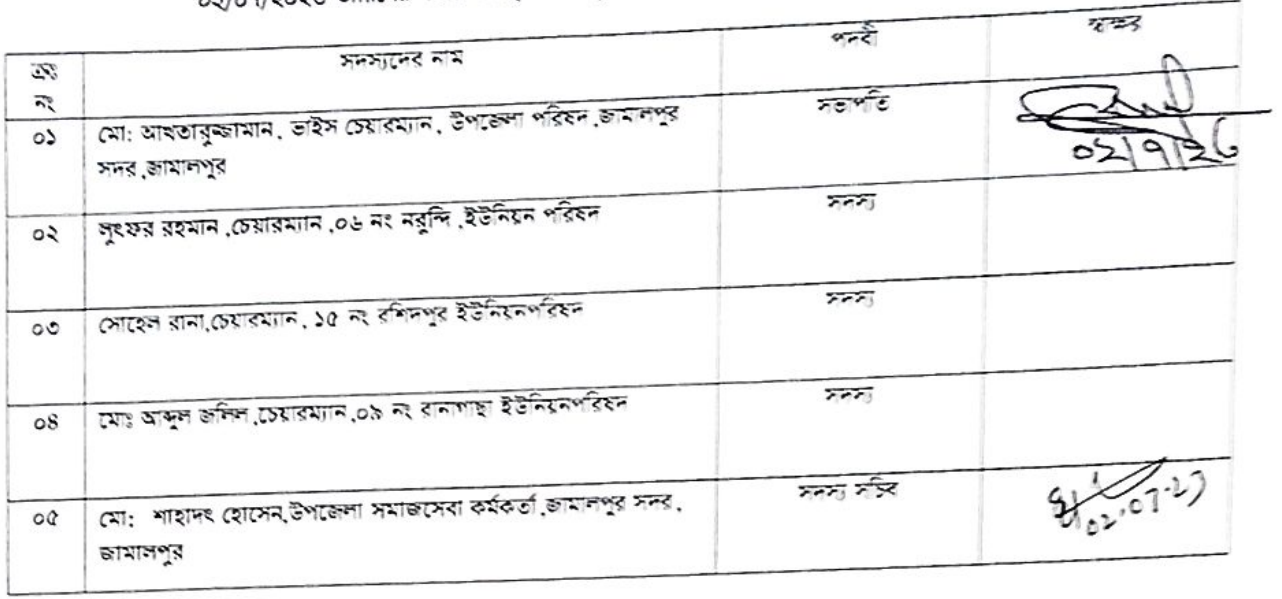 ক্রঃ নং সদস্যদের নাম পদবী স্বাক্ষর
০১ মো: আখতারুজ্জামান, ভাইস চেয়ারম্যান, উপজেলা পরিষদ ,জামালপুর সভাপতি
সদর ,জামালপুর
০২/৭/২৩
০২ লুৎফর রহমান ,চেয়ারম্যান ,০৬ নং নরুন্দি ,ইউনিয়ন পরিষদ সদস্য
০৩ সোহেল রানা,চেয়ারম্যান, ১৫ নং রশিদপুর ইউনিয়নপরিষদ সদস্য
০৪ মোঃ আব্দুল জলিল ,চেয়ারম্যান ,০৯ নং রানাগাছা ইউনিয়নপরিষদ সদস্য
০৫ মো: শাহাদৎ হোসেন,উপজেলা সমাজসেবা কর্মকর্তা ,জামালপুর সদর, সদস্য সচিব
জামালপুর
02.07.23